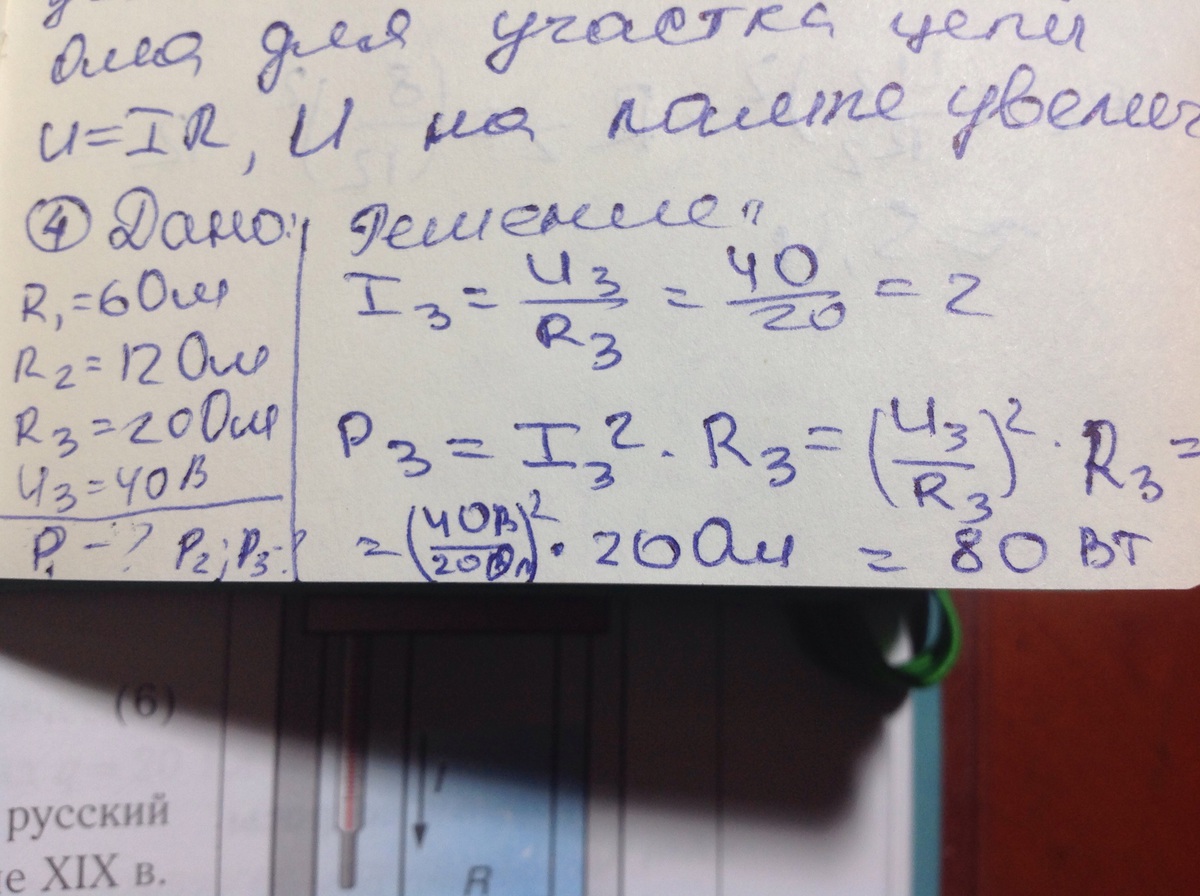 ома для участка цепи
U=IR, U на лампе увелич
④ Дано: Решение:
R₁=6Ом
R₂=12Ом
R₃=20Ом
U₃=40В
P₁-? P₂; P₃-?
I₃ = U₃/R₃ = 40/20 = 2
P₃ = I₃² · R₃ = (U₃/R₃)² · R₃ =
= (40В/20Ом)² · 20Ом = 80 Вт
(6)
русский
е XIX в.
I
R